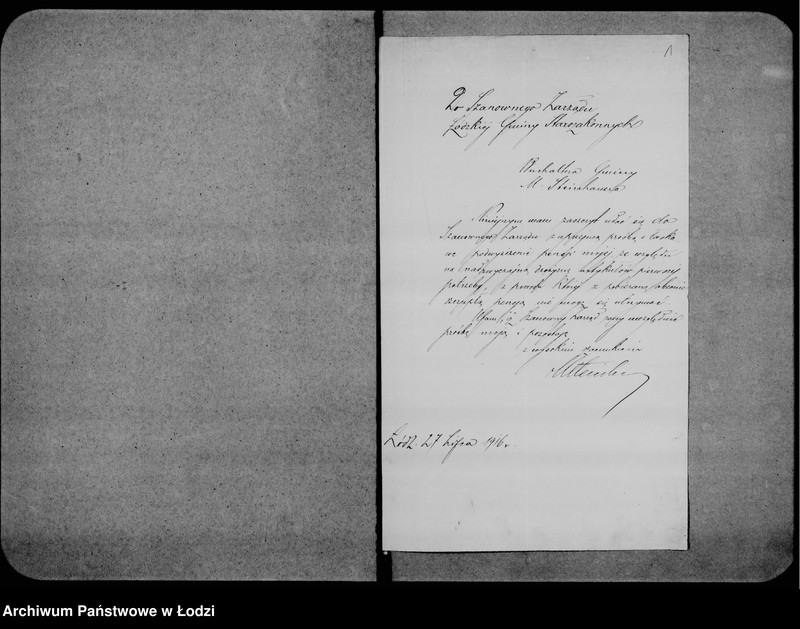 Do Szanownego Zarządu
Łódzkiej Gminy Starozakonnych
Buchaltera Gminy
M.
Niniejszym mam zaszczyt udać się do
Szanownego Zarządu z uprzejmą prośbą o łask
we podwyższenie pensji mojej ze względu
na nadzwyczajną drożyznę artykułów pierwszej
potrzeby, z powodu której z pobieraną obecnie
szczupłą pensją nie mogę się utrzymać.
Ufam, iż Szanowny Zarząd raczy uwzględnić
prośbę moją i pozostaję
z wysokim szacunkiem
Łódź 27 Lipca 1916 r.
Archiwum Państwowe w Łodzi